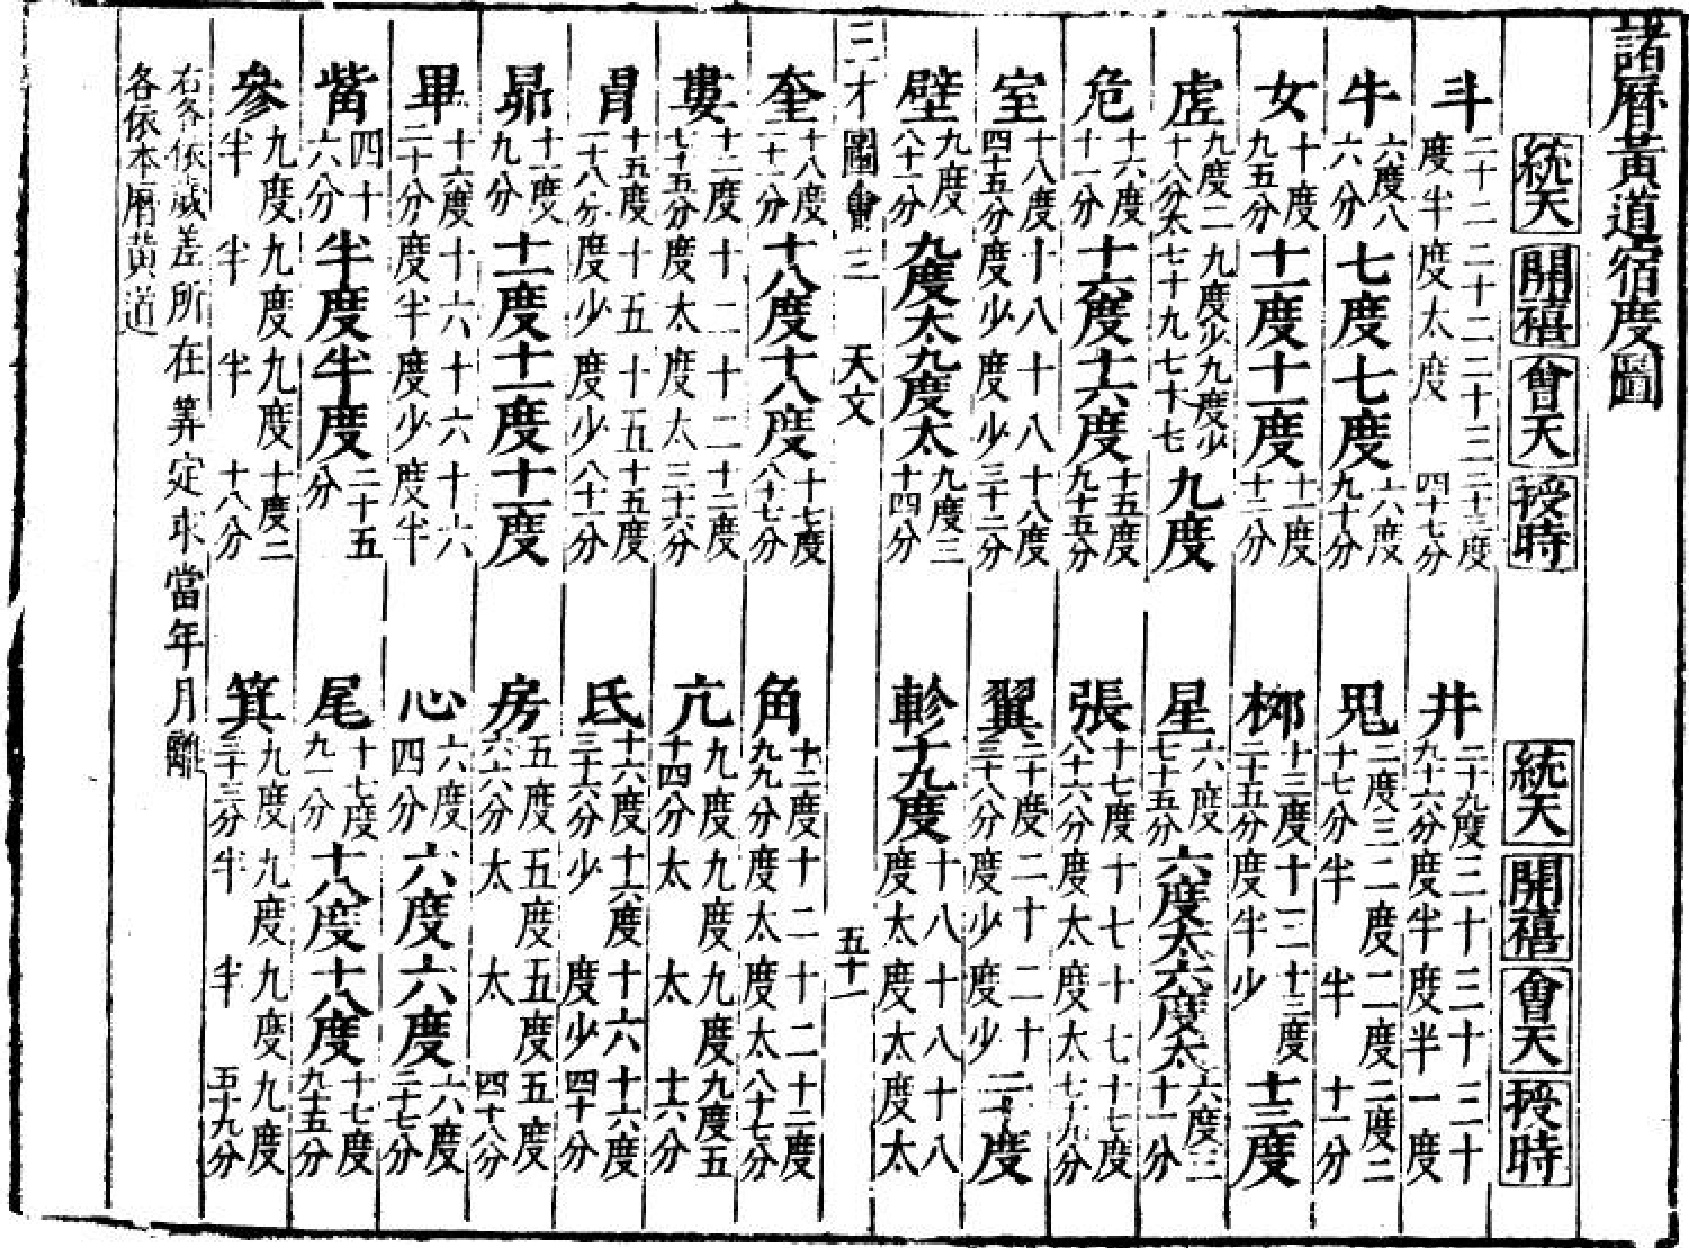 諸曆黃道宿度圖
統天 開禧 會天 授時
統天 開禧 會天 授時
斗 二十二度半 二十二度太 二十三度 二十三度四十七分
井 二十九度九十六分 三十度半 三十度半 三十一度
牛 六度八六分 七度 七度 六度九十分
鬼 二度三十七分 二度半 二度半 二度二十一分
女 十度九五分 十一度 十一度 十一度十二分
柳 十三度二十五分 十三度半 十三度少 十三度
虛 九度二十八分太 九度少七十九 九度少七十七 九度
星 六度七十五分 六度太 六度太 六度三十一分
危 十六度十一分 十六度 十六度 十五度九十五分
張 十七度八十六分 十七度太 十七度太 十七度七九分
室 十八度四十五分 十八度少 十八度少 十八度三十二分
翼 二十度二十八分 二十度少 二十度少 二十度
壁 九度八十一分 九度太 九度太 九度三十四分
軫 十九度 十八度太 十八度太 十八度太
三才圖會 三 天文 五十一
奎 十八度二十一分 十八度 十八度 十七度八十七分
角 十二度九九分 十二度太 十二度太 十二度八十七分
婁 十二度七十五分 十二度太 十二度太 十二度三十六分
亢 九度十四分 九度太 九度太 九度五十六分
胃 十五度二十八分 十五度少 十五度少 十五度八十一分
氐 十六度三十六分 十六度少 十六度少 十六度四十分
昴 十一度九分 十一度 十一度 十一度
房 五度六六分 五度太 五度太 五度四十八分
畢 十六度二十分 十六度半 十六度少 十六度半
心 六度四分 六度 六度 六度二十七分
觜 四十六分 半度 半度 二十五分
尾 十七度九一分 十八度 十八度 十七度九十五分
參 九度半 九度半 九度半 十度二十八分
箕 九度三十三分 九度半 九度半 九度五十九分
右各依歲差所在筭定求當年月離
各依本曆黃道